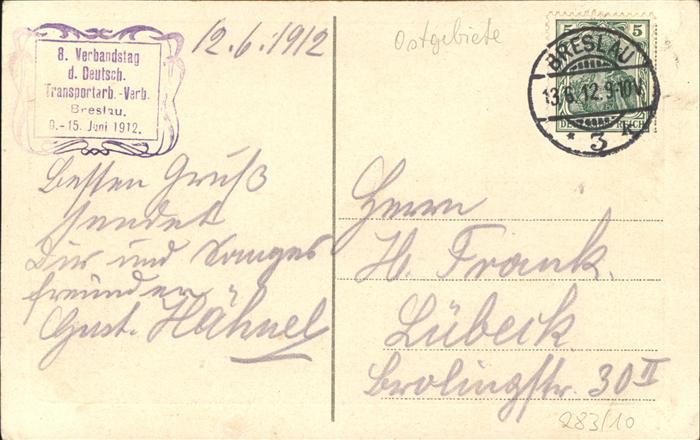 8. Verbandstag
d. Deutsch.
Transportarb.-Verb.
Breslau.
9.-15. Juni 1912.
12.6.1912
Ostgebiete
5 5
BRESLAU
13.6.12.9-10V.
* 3
DEUTSCHES REICH
Besten Gruß
sendet
Dir und Sanges
freunden
Gust. Hähnel
Herrn
H. Frank.
Lübeck
Brolingstr. 30 II
283/10